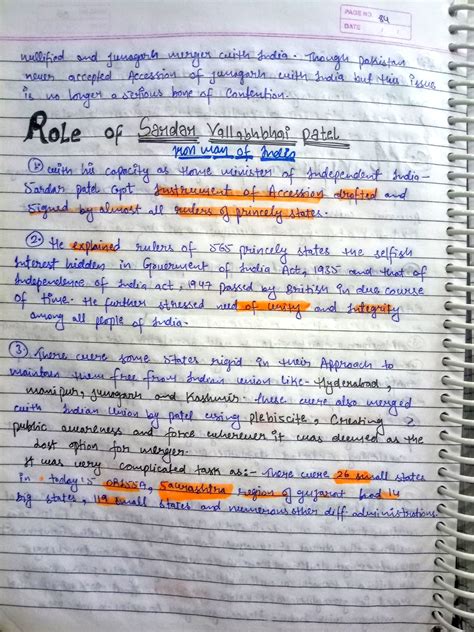 PAGE NO. 84
DATE
nullified and junagarh merger with India. Though pakistan
never accepted Accession of junagarh with India but this issue
is no longer a serious bone of Contention.
Role of Sardar Vallabhbhai Patel
Iron man of India
① with his capacity as Home minister of Independent India-
Sardar patel Got Instrument of Accession drafted and
Signed by almost all rulers of princely states.
2. He explained rulers of 565 princely states the selfish
Interest hidden in Government of India Act, 1935 and that of
Independence of India act, 1947 passed by British in due course
of time. He further stressed need of unity and Integrity
among all people of India.
③ There were some states rigid in their Approach to
maintain them free from Indian union like- Hyderabad,
manipur, junagarh and Kashmir. these were also merged
with Indian Union by patel using plebiscite, Creating
public awareness and force wherever it was deemed as the
last option for merger.
It was very complicated task as:- There were 26 small states
in today's ORISSA, Saurashtra region of gujarat had 14
big states, 119 small states and numerous other diff administrations